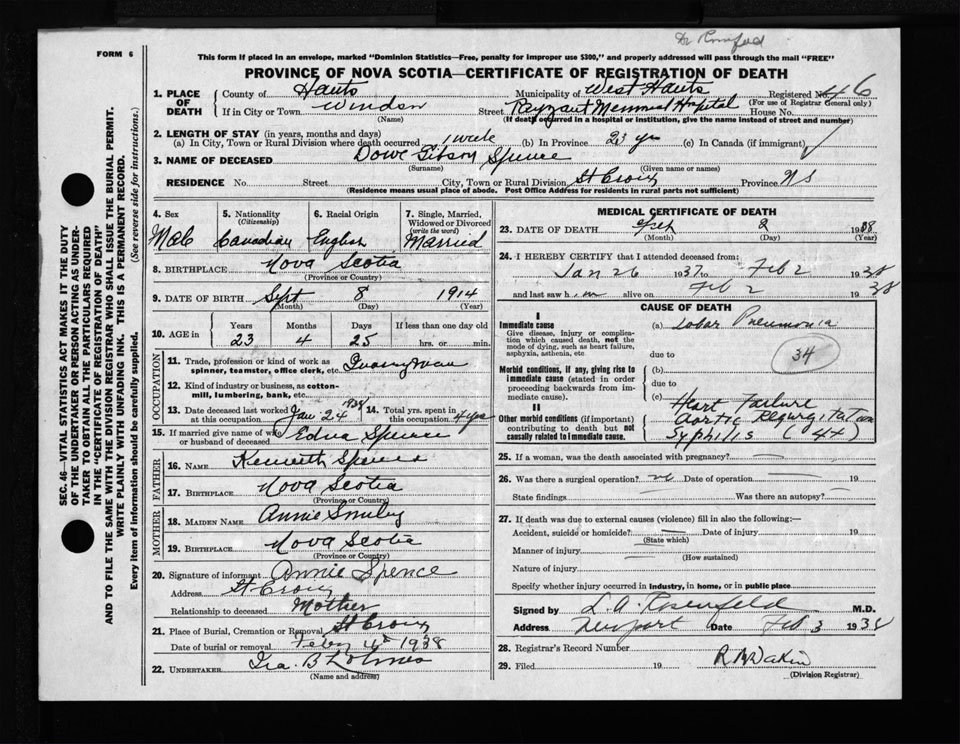 Dr Rosenfeld
FORM 6
This form if placed in an envelope, marked "Dominion Statistics—Free, penalty for improper use $300," and properly addressed will pass through the mail "FREE"
PROVINCE OF NOVA SCOTIA—CERTIFICATE OF REGISTRATION OF DEATH
1. PLACE OF DEATH
County of Hants Municipality of West Hants Registered No. 446
(For use of Registrar General only)
If in City or Town Windsor Street Payzant Memorial Hospital House No.
(Name) (If death occurred in a hospital or institution, give the name instead of street and number)
2. LENGTH OF STAY (in years, months and days)
(a) In City, Town or Rural Division where death occurred 1 week (b) In Province 23 yrs (c) In Canada (if immigrant)
3. NAME OF DECEASED Spence
(Surname) (Given name or names)
RESIDENCE No. Street City, Town or Rural Division St Croix Province NS
(Residence means usual place of abode. Post Office Address for residents in rural parts not sufficient)
4. Sex
Male
5. Nationality
(Citizenship)
Canadian
6. Racial Origin
English
7. Single, Married, Widowed or Divorced
(write the word)
Married
8. BIRTHPLACE Nova Scotia
(Province or Country)
9. DATE OF BIRTH Sept 8 1914
(Month) (Day) (Year)
10. AGE in
Years Months Days If less than one day old
23 4 25 hrs. or min.
OCCUPATION
11. Trade, profession or kind of work as spinner, teamster, office clerk, etc. Quarryman
12. Kind of industry or business, as cotton-mill, lumbering, bank, etc.
13. Date deceased last worked at this occupation Jan 24 1938 14. Total yrs. spent in this occupation 4 yrs
15. If married give name of wife or husband of deceased Edna Spence
FATHER
16. NAME Kenneth Spence
17. BIRTHPLACE Nova Scotia
(Province or Country)
MOTHER
18. MAIDEN NAME Annie Smiley
19. BIRTHPLACE Nova Scotia
(Province or Country)
20. Signature of informant Annie Spence
Address St Croix
Relationship to deceased Mother
21. Place of Burial, Cremation or Removal St Croix
Date of burial or removal Feby 4th 1938
22. UNDERTAKER Ira. B
(Name and address)
MEDICAL CERTIFICATE OF DEATH
23. DATE OF DEATH 2 1938
(Month) (Day) (Year)
24. I HEREBY CERTIFY that I attended deceased from:
Jan 26 1937 to Feb 2 1938
and last saw him alive on Feb 2 1938
CAUSE OF DEATH
I
Immediate cause
Give disease, injury or complication which caused death, not the mode of dying, such as heart failure, asphyxia, asthenia, etc
(a) Lobar Pneumonia
due to
34
Morbid conditions, if any, giving rise to immediate cause (stated in order proceeding backwards from immediate cause).
(b)
due to
(c)
II
Other morbid conditions (if important) contributing to death but not causally related to immediate cause.
Heart failure
Aortic Regurgitation
Syphilis (4+)
25. If a woman, was the death associated with pregnancy?
26. Was there a surgical operation? no Date of operation 19
State findings Was there an autopsy?
27. If death was due to external causes (violence) fill in also the following:—
Accident, suicide or homicide? Date of injury 19
(State which)
Manner of injury
(How sustained)
Nature of injury
Specify whether injury occurred in industry, in home, or in public place
Signed by L. A. Rosenfeld M.D.
Address Newport Date Feb 3 1938
28. Registrar's Record Number
29. Filed 19
(Division Registrar)
SEC. 46—VITAL STATISTICS ACT MAKES IT THE DUTY
OF THE UNDERTAKER OR PERSON ACTING AS UNDERTAKER TO OBTAIN ALL THE PARTICULARS REQUIRED
IN THE "CERTIFICATE OF REGISTRATION OF DEATH"
AND TO FILE THE SAME WITH THE DIVISION REGISTRAR WHO SHALL ISSUE THE BURIAL PERMIT.
WRITE PLAINLY WITH UNFADING INK. THIS IS A PERMANENT RECORD.
Every item of information should be carefully supplied. (See reverse side for instructions.)